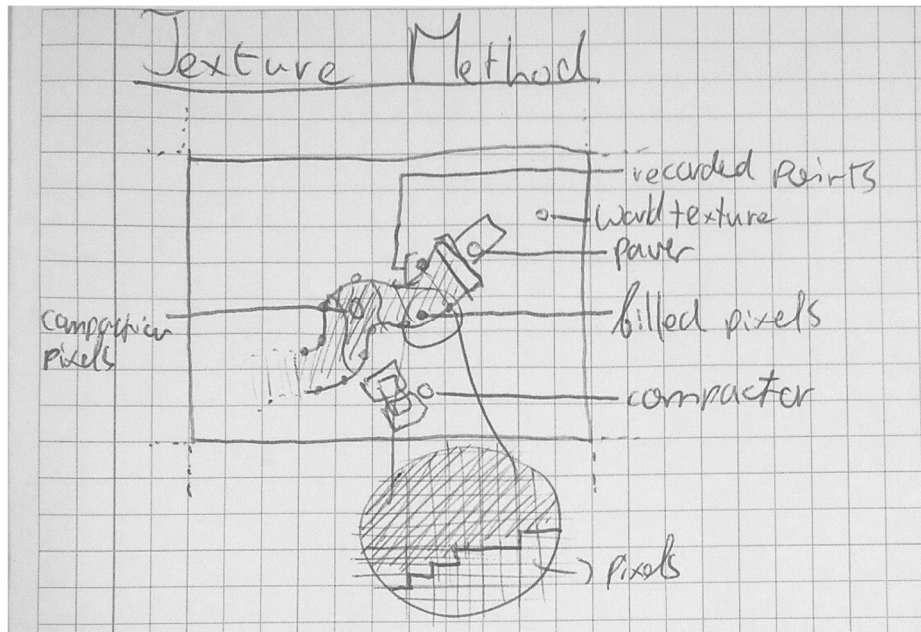 Texture Method
recorded points
World texture
paver
filled pixels
compaction
pixels
compactor
pixels